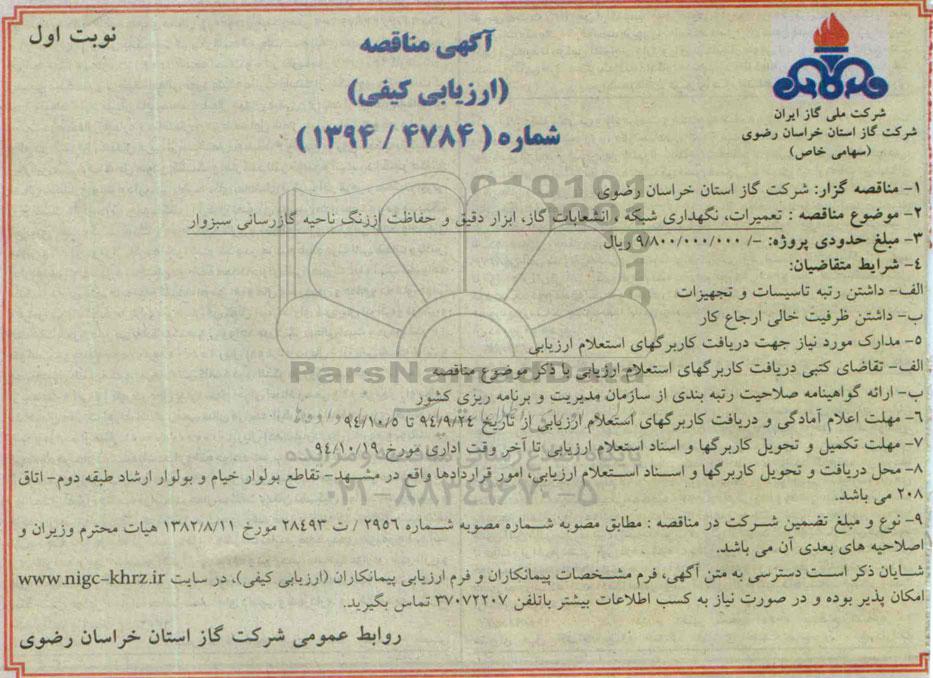 نوبت اول
آگهی مناقصه
(ارزیابی کیفی)
شماره ( ۴۷۸۴ / ۱۳۹۴ )
شرکت ملی گاز ایران
شرکت گاز استان خراسان رضوی
(سهامی خاص)
۱- مناقصه گزار: شرکت گاز استان خراسان رضوی
۲- موضوع مناقصه : تعمیرات، نگهداری شبکه ، انشعابات گاز، ابزار دقیق و حفاظت اززنگ ناحیه گازرسانی سبزوار
۳- مبلغ حدودی پروژه: -/ ۹/۸۰۰/۰۰۰/۰۰۰ ریال
٤- شرایط متقاضیان:
الف- داشتن رتبه تاسیسات و تجهیزات
ب- داشتن ظرفیت خالی ارجاع کار
۵- مدارک مورد نیاز جهت دریافت کاربرگهای استعلام ارزیابی
الف- تقاضای کتبی دریافت کاربرگهای استعلام ارزیابی با ذکر موضوع مناقصه
ب- ارائه گواهینامه صلاحیت رتبه بندی از سازمان مدیریت و برنامه ریزی کشور
٦- مهلت اعلام آمادگی و دریافت کاربرگهای استعلام ارزیابی از تاریخ ۹٤/۹/۲٤ تا ۹٤/۱۰/۵
۷- مهلت تکمیل و تحویل کاربرگها و اسناد استعلام ارزیابی تا آخر وقت اداری مورخ ۹٤/۱۰/۱۹
۸- محل دریافت و تحویل کاربرگها و اسناد استعلام ارزیابی، امور قراردادها واقع در مشهد- تقاطع بولوار خیام و بولوار ارشاد طبقه دوم- اتاق
۲۰۸ می باشد.
۹- نوع و مبلغ تضمین شرکت در مناقصه : مطابق مصوبه شماره مصوبه شماره ۲۹۵٦ / ت ۲۸٤۹۳ مورخ ۱۳۸۲/۸/۱۱ هیات محترم وزیران و
اصلاحیه های بعدی آن می باشد.
شایان ذکر است دسترسی به متن آگهی، فرم مشخصات پیمانکاران و فرم ارزیابی پیمانکاران (ارزیابی کیفی)، در سایت www.nigc-khrz.ir
امکان پذیر بوده و در صورت نیاز به کسب اطلاعات بیشتر باتلفن ۳۷۰۷۲۲۰۷ تماس بگیرید.
روابط عمومی شرکت گاز استان خراسان رضوی
ParsNamadData
۰۲۱-۸۸۳۴۹۶۷۰-۵